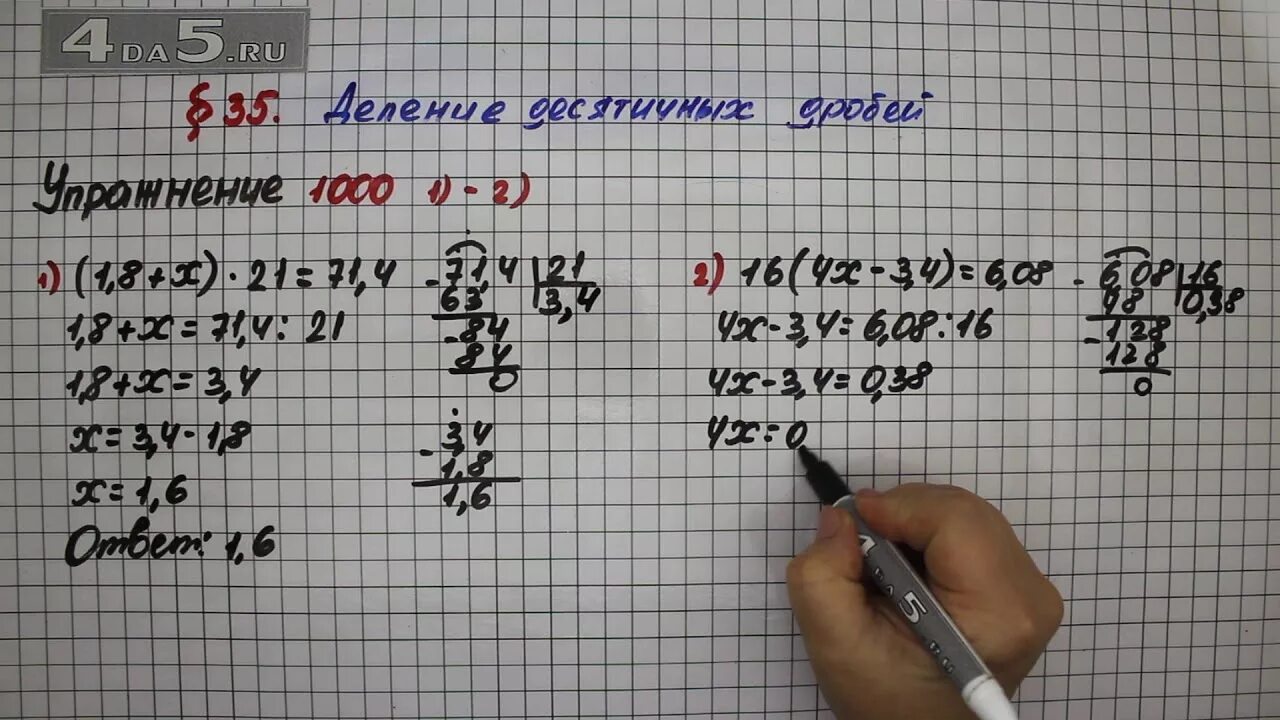 4DA5.RU
§ 35. Деление десятичных дробей
Упражнение 1000 1) - 2)
1) (1,8 + x) · 21 = 71,4
1,8 + x = 71,4 : 21
1,8 + x = 3,4
x = 3,4 - 1,8
x = 1,6
Ответ: 1,6
- 71,4 21
63 3,4
- 84
84
0
- 3,4
1,8
1,6
2) 16(4x - 3,4) = 6,08
4x - 3,4 = 6,08 : 16
4x - 3,4 = 0,38
4x = 0
- 6,08 16
48 0,38
- 128
128
0
4DA5.RU